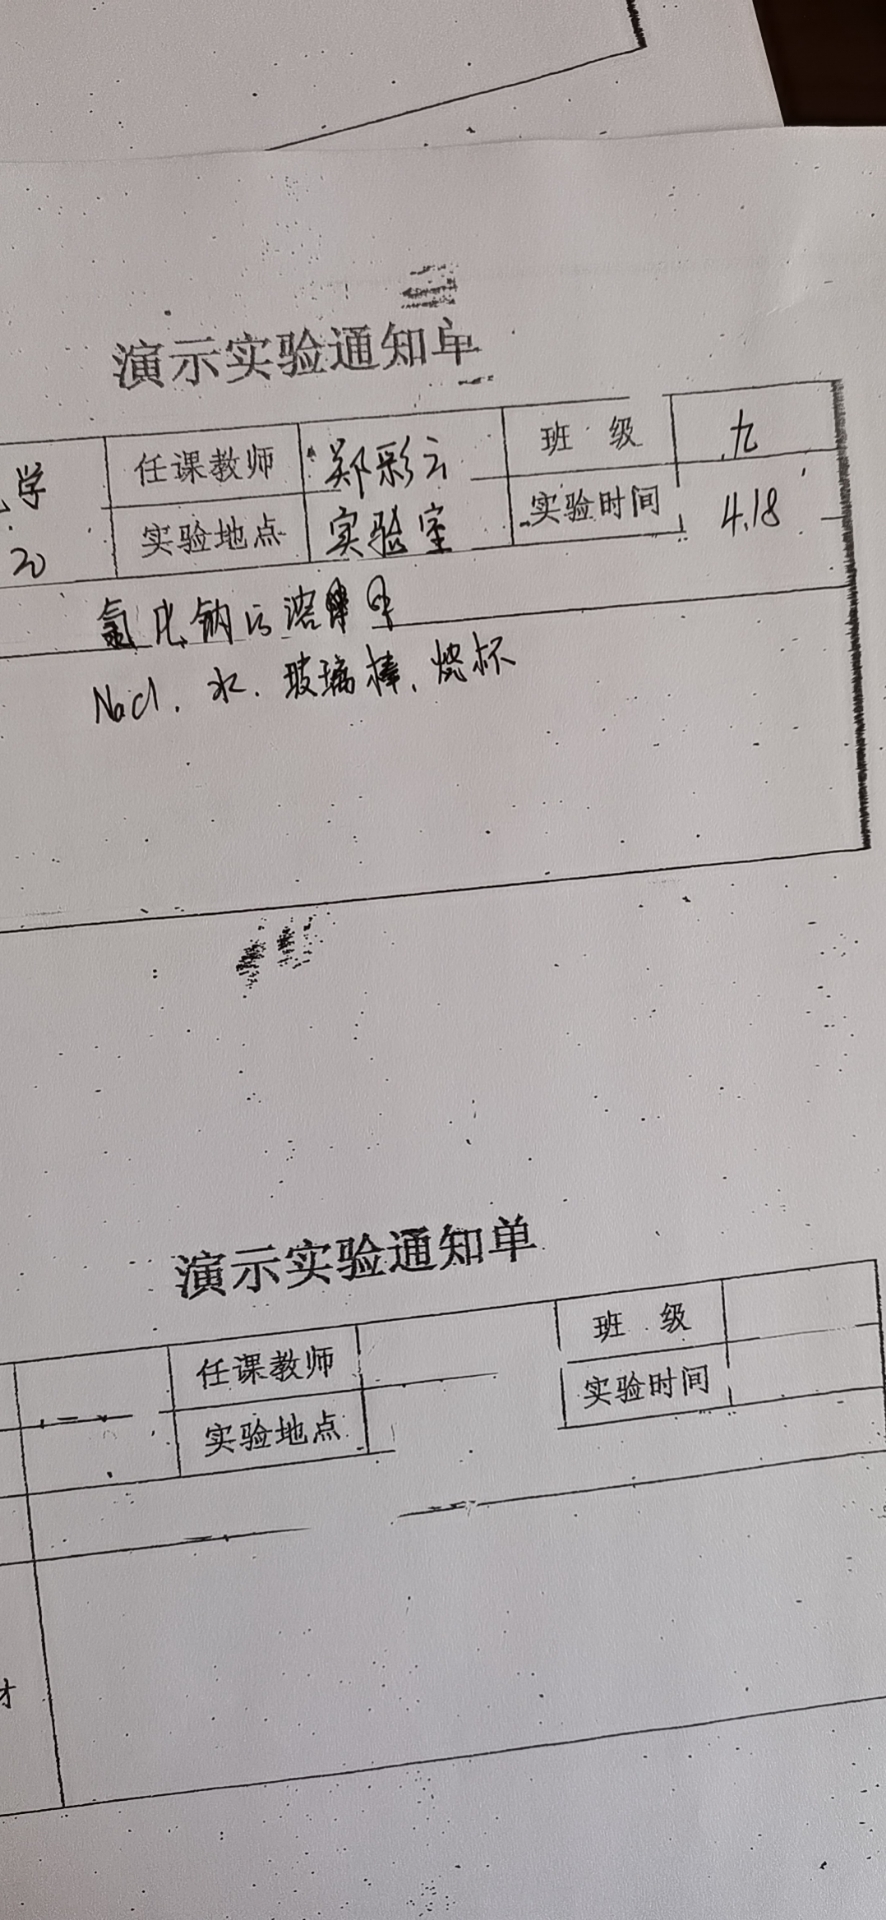 演示实验通知单
学 任课教师 郑彩云 班 级 九
20 实验地点 实验室 实验时间 4.18
氯化钠溶
NaCl、水、玻璃棒、烧杯
演示实验通知单
任课教师 班 级
实验地点 实验时间
材